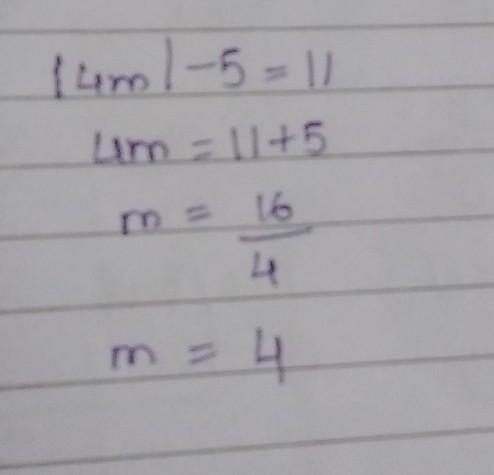 |4m| - 5 = 11
4m = 11 + 5
m = 16/4
m = 4